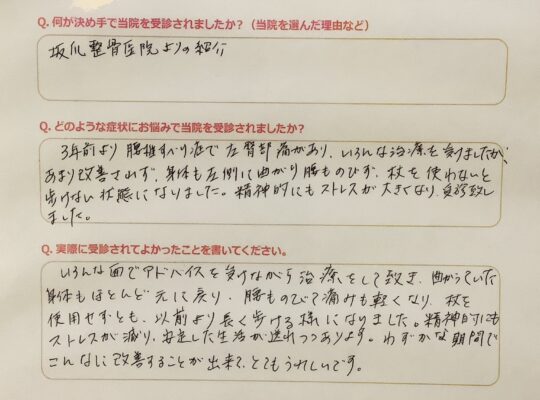 Q. 何が決め手で当院を受診されましたか？（当院を選んだ理由など）
坂爪整骨医院よりの紹介
Q. どのような症状にお悩みで当院を受診されましたか？
3年前より腰椎すべり症で左臀部痛があり、いろんな治療を受けましたが、
あまり改善されず、身体も左側に曲がり腰ものびず、杖を使わないと
歩けない状態になりました。精神的にもストレスが大きくなり、受診致し
ました。
Q. 実際に受診されてよかったことを書いてください。
いろんな面でアドバイスを受けながら治療をして致き、曲がっていた
身体もほとんど元に戻り、腰ものびて痛みも軽くなり、杖を
使用せずとも、以前より長く歩ける様になりました。精神的にも
ストレスが減り、安定した生活が送れつつあります。わずかな期間で
こんなに改善することが出来て、とてもうれしいです。